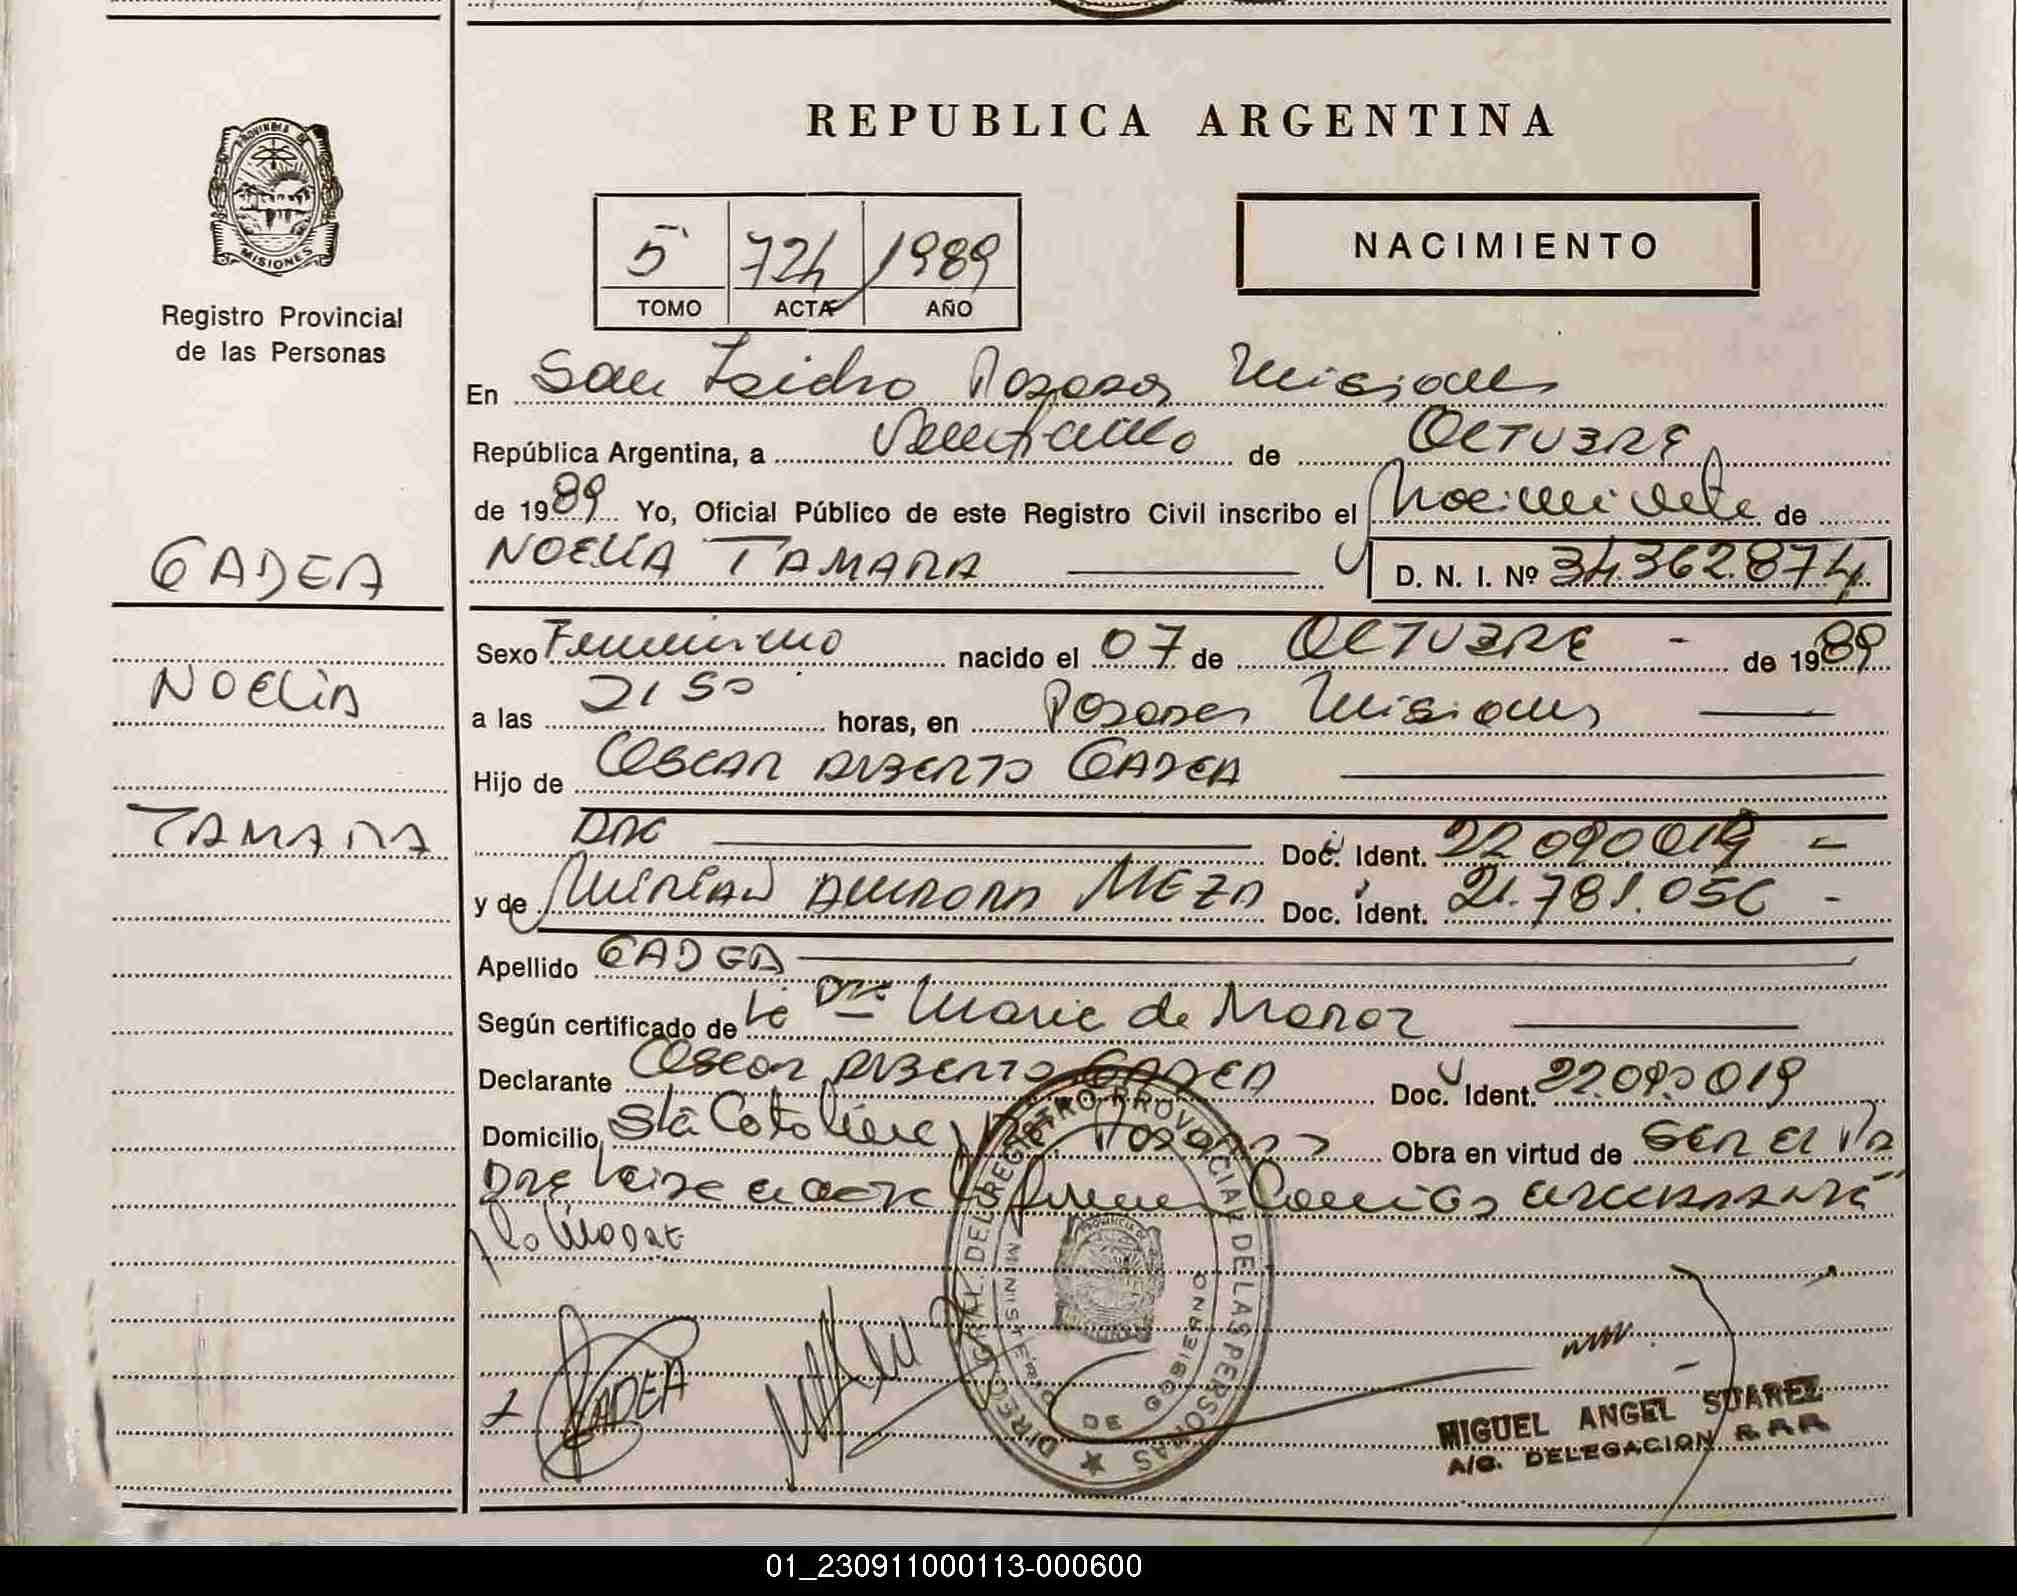 REPUBLICA ARGENTINA
PROVINCIA DE
MISIONES
Registro Provincial
de las Personas
5 724 1989
TOMO ACTA AÑO
NACIMIENTO
En San Isidro Posadas Misiones
República Argentina, a de OCTUBRE
de 1989 Yo, Oficial Público de este Registro Civil inscribo el Nacimiento de
NOELIA TAMARA D. N. I. Nº 34.362.874
GADEA
NOELIA
TAMARA
Sexo Femenino nacido el 07 de OCTUBRE - de 1989
a las 21 50 horas, en Posadas Misiones
Hijo de OSCAR ALBERTO GADEA
Doc. Ident. 22 090 019 -
y de MIRIAN AURORA MEZA Doc. ident. 21.781.056 -
Apellido GADEA
Según certificado de la Dra Maria de
Declarante OSCAR ALBERTO GADEA Doc. Ident. 22.090 019
Domicilio Sta Catalina Posadas Obra en virtud de SER EL PA
DRE
GADEA
DIREC. GRAL. DEL REGISTRO PROVINCIAL DE LAS PERSONAS
MINISTERIO DE GOBIERNO
PROVINCIA
MIGUEL ANGEL SUAREZ
A/C. DELEGACION R.P.P.
01_230911000113-000600